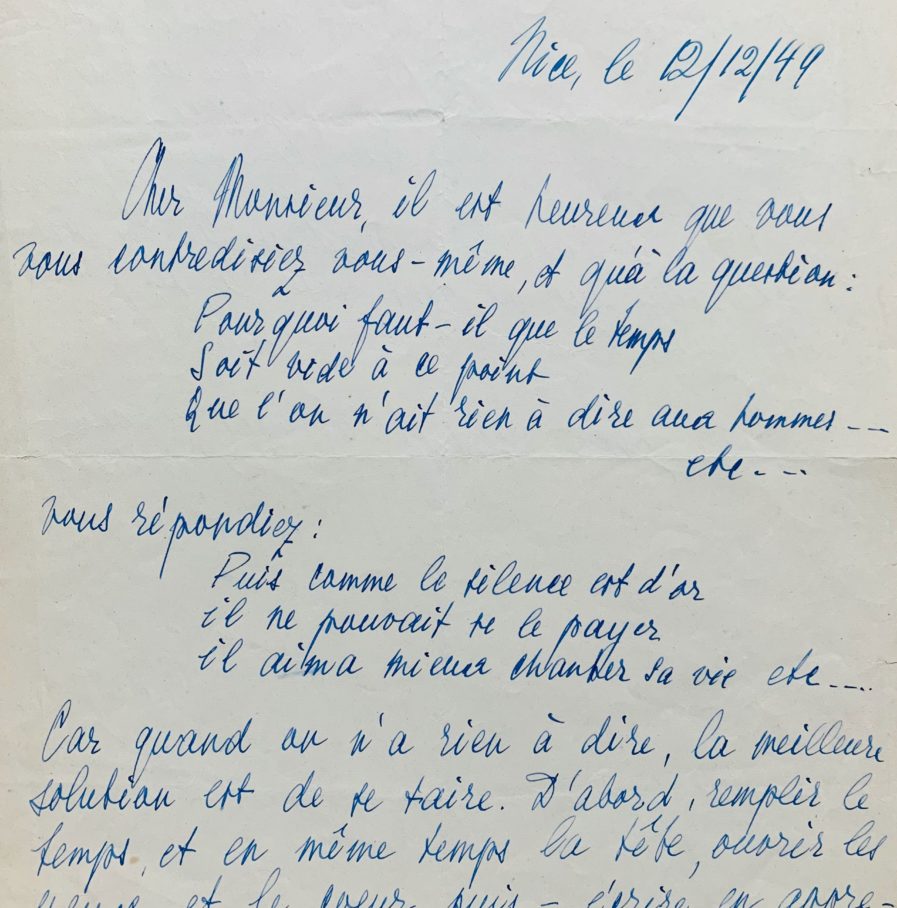 Nice, le 12/12/49
Cher Monsieur, il est heureux que vous
vous contredisiez vous-même, et qu'à la question:
Pourquoi faut-il que le temps
Soit vide à ce point
Que l'on n'ait rien à dire aux hommes ---
etc ---
vous répondiez:
Puis comme le silence est d'or
il ne pouvait se le payer
il aima mieux chanter sa vie etc ----
Car quand on n'a rien à dire, la meilleure
solution est de se taire. D'abord, remplir le
temps, et en même temps la tête, ouvrir les
et le coeur puis - écrire en appre-